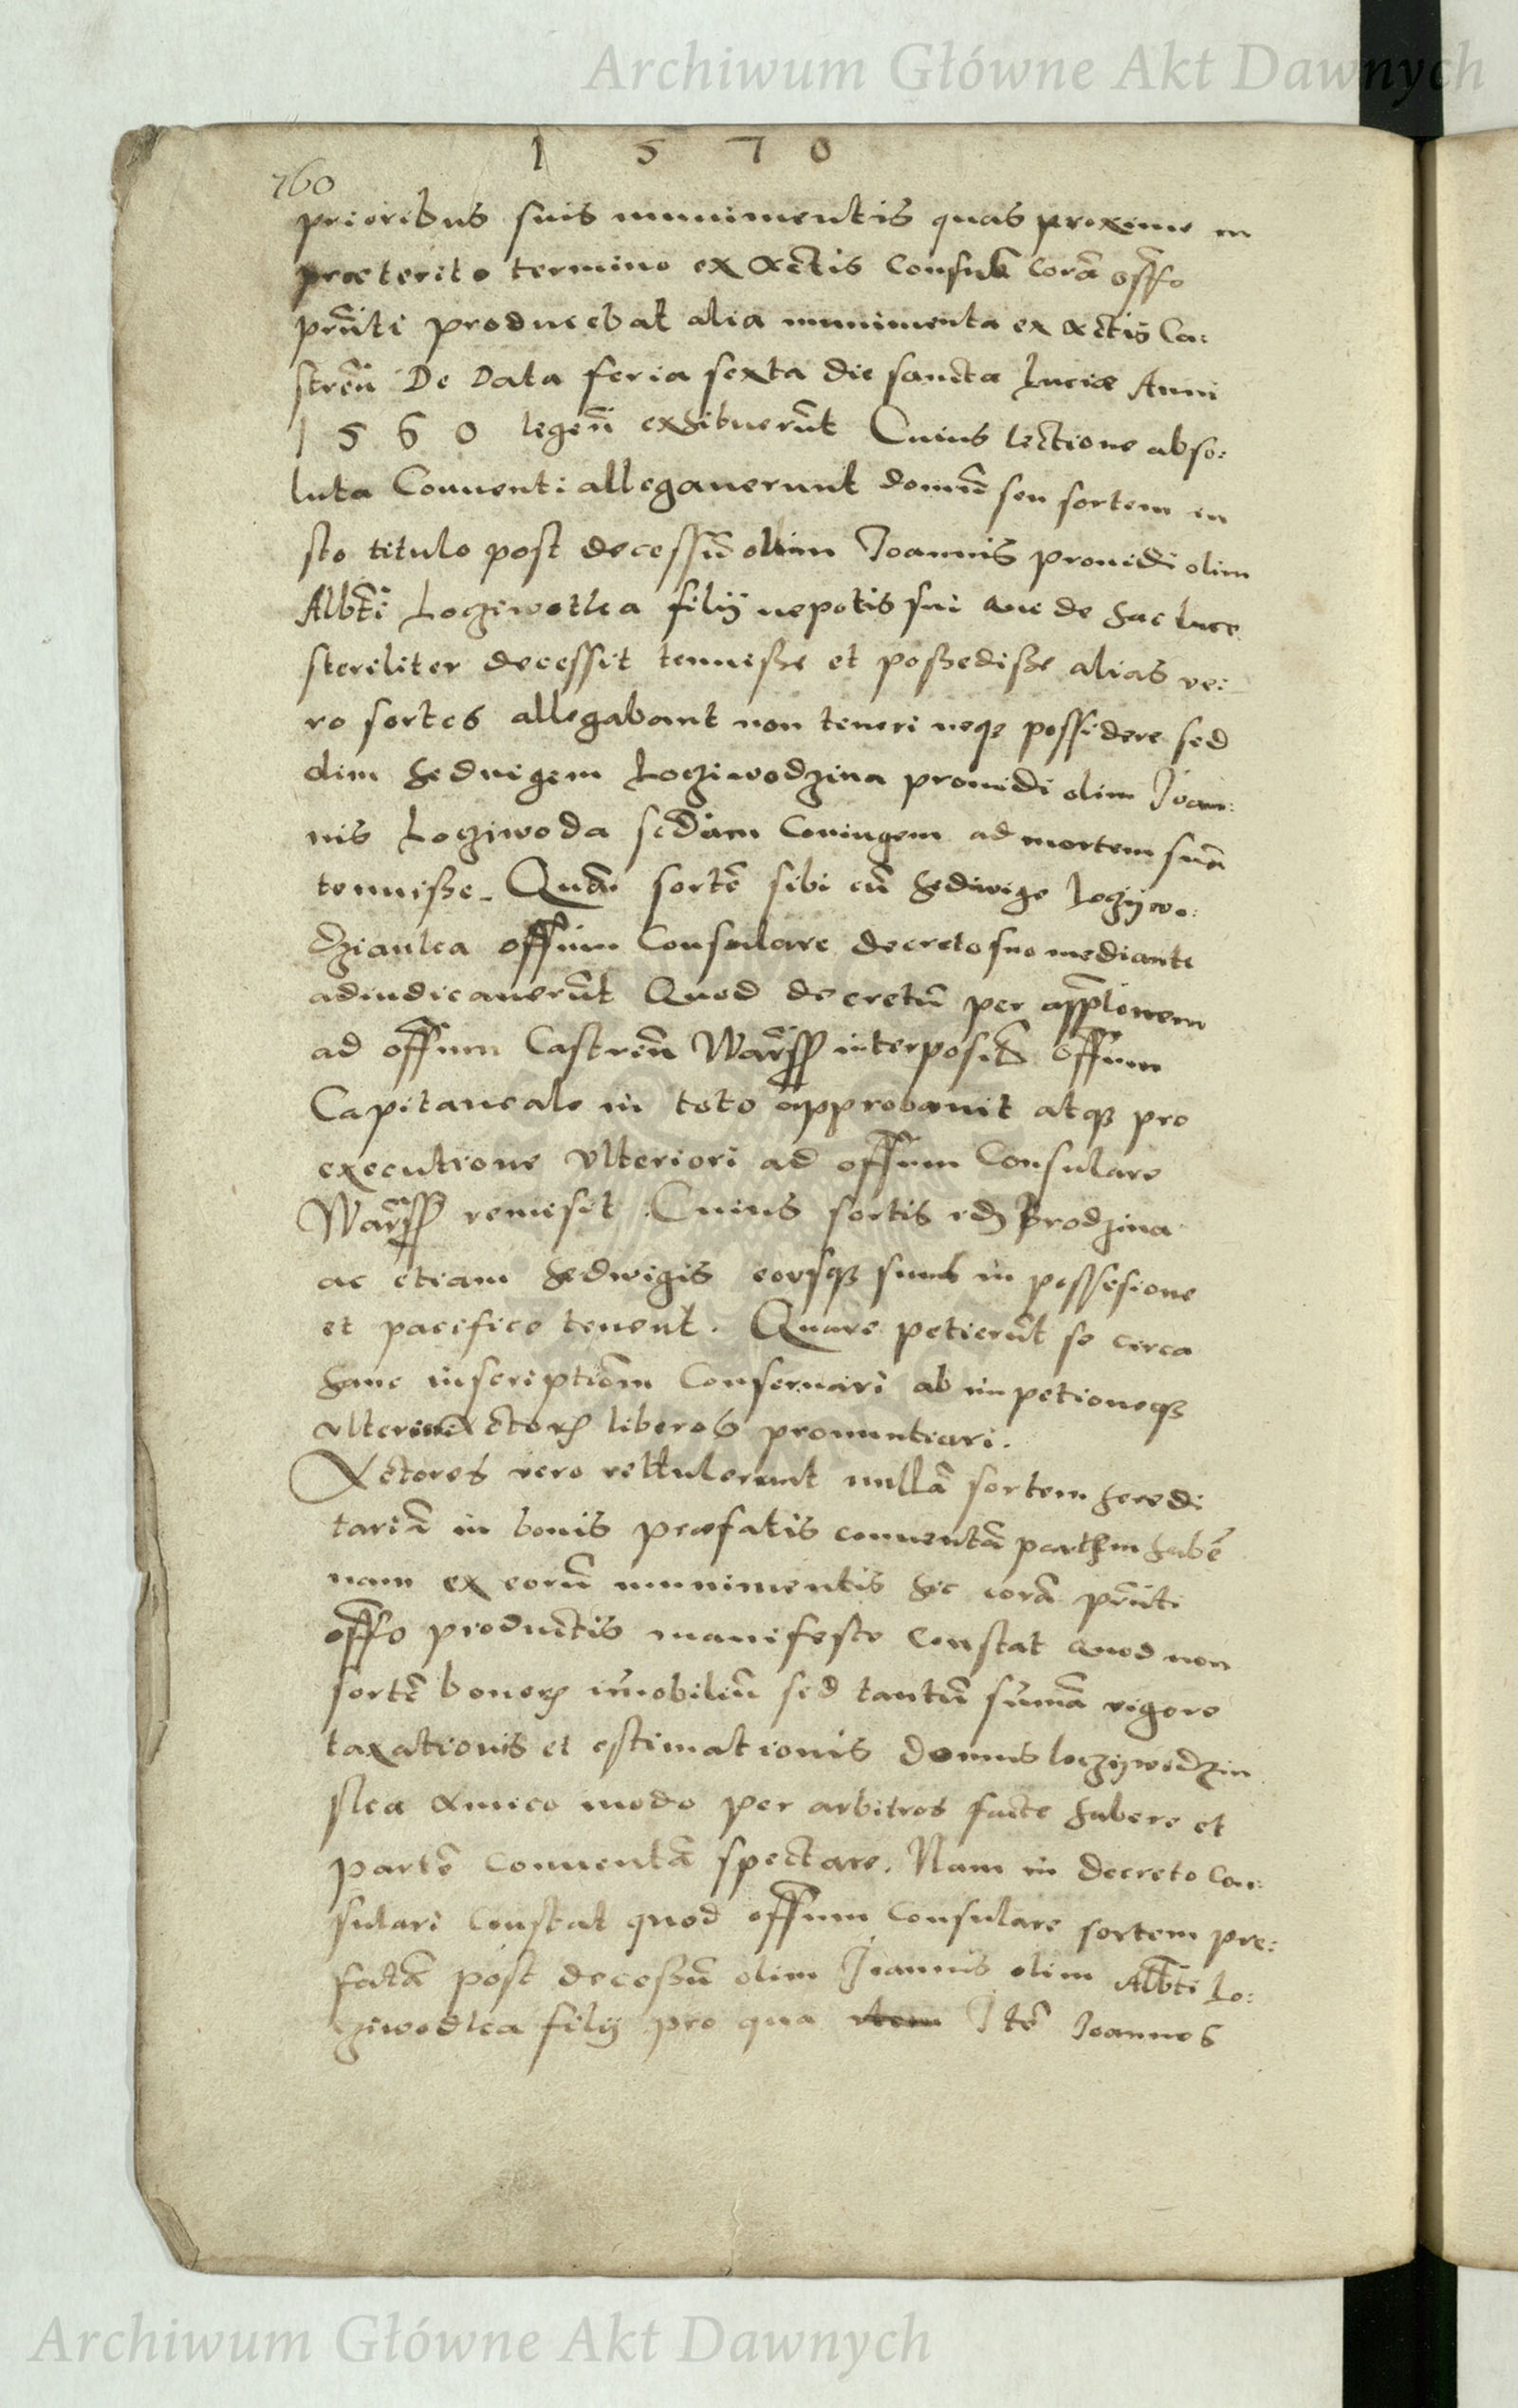 Archiwum Główne Akt Dawnych
1 5 7 0
760
prioribus suis munimentis quas proxime in
præterito termino ex Actis Consul: corã offo
pñti producebat alia munimenta ex Actis Ca:
streñ De Data feria sexta die sancta Luciæ Anni
1 5 6 0 legeñ exhibuerũt Cuius lectione abso:
luta Conuenti allegauerunt domũ seu sortem iu
sto titulo post decessũ olim Joannis prouidi olim
Albti Logziwotka filij nepotis sui que de hac luce
steriliter decessit tenuisße et poßedisße alias ve:
ro sortes allegabant non teneri neqз possidere sed
olim Heduigem Logziwodzina prouidi olim Joan:
nis Logziwoda scdam Coniugem ad mortem suã
tenuisße. Quam sortẽ sibi cũ Hedwige Logzywo:
dzianka offium Consulare decreto suo mediante
adiudicauerũt Quod decretũ per appłonem
ad offium Castreñ Warss interposit offium
Capitaneale in toto approbauit atqз pro
executione vlteriori ad offium Consulare
Warss remisit. Cuius sortis Brodzina
ac etiam Hedwigis eorsqз sunt in possesione
et pacifice tenent. Quare petierũt se circa
hanc inscriptiõm Conseruari ab impetioneqз
vlteriori Actorꝝ liberos pronuntiari.
Actores vero rettulerunt nullã sortem heredi
tariã in bonis præfatis conuentã parthem habẽ
nam ex eorũ munimentis hic corã pñti
offo productis manifeste Constat quod non
sortẽ bonorꝝ imobiliũ sed tantũ sumã vigore
taxationis et estimationis domus logzywodzin
ska Amico modo per arbitros facte habere et
partẽ Conuentã spectare. Nam in decreto Con:
sulari Constat quod offium Consulare sortem pre:
fatã post deceßũ olim Joannis olim Albti Lo:
ziwodka filij pro qua Itẽ Joannes
Archiwum Główne Akt Dawnych